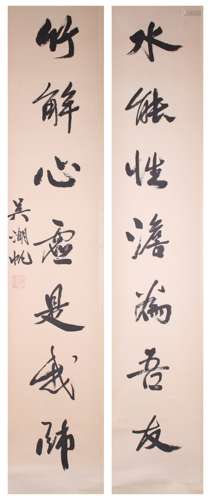 水能性澹為吾友
竹解心虛是我師
吳湖帆